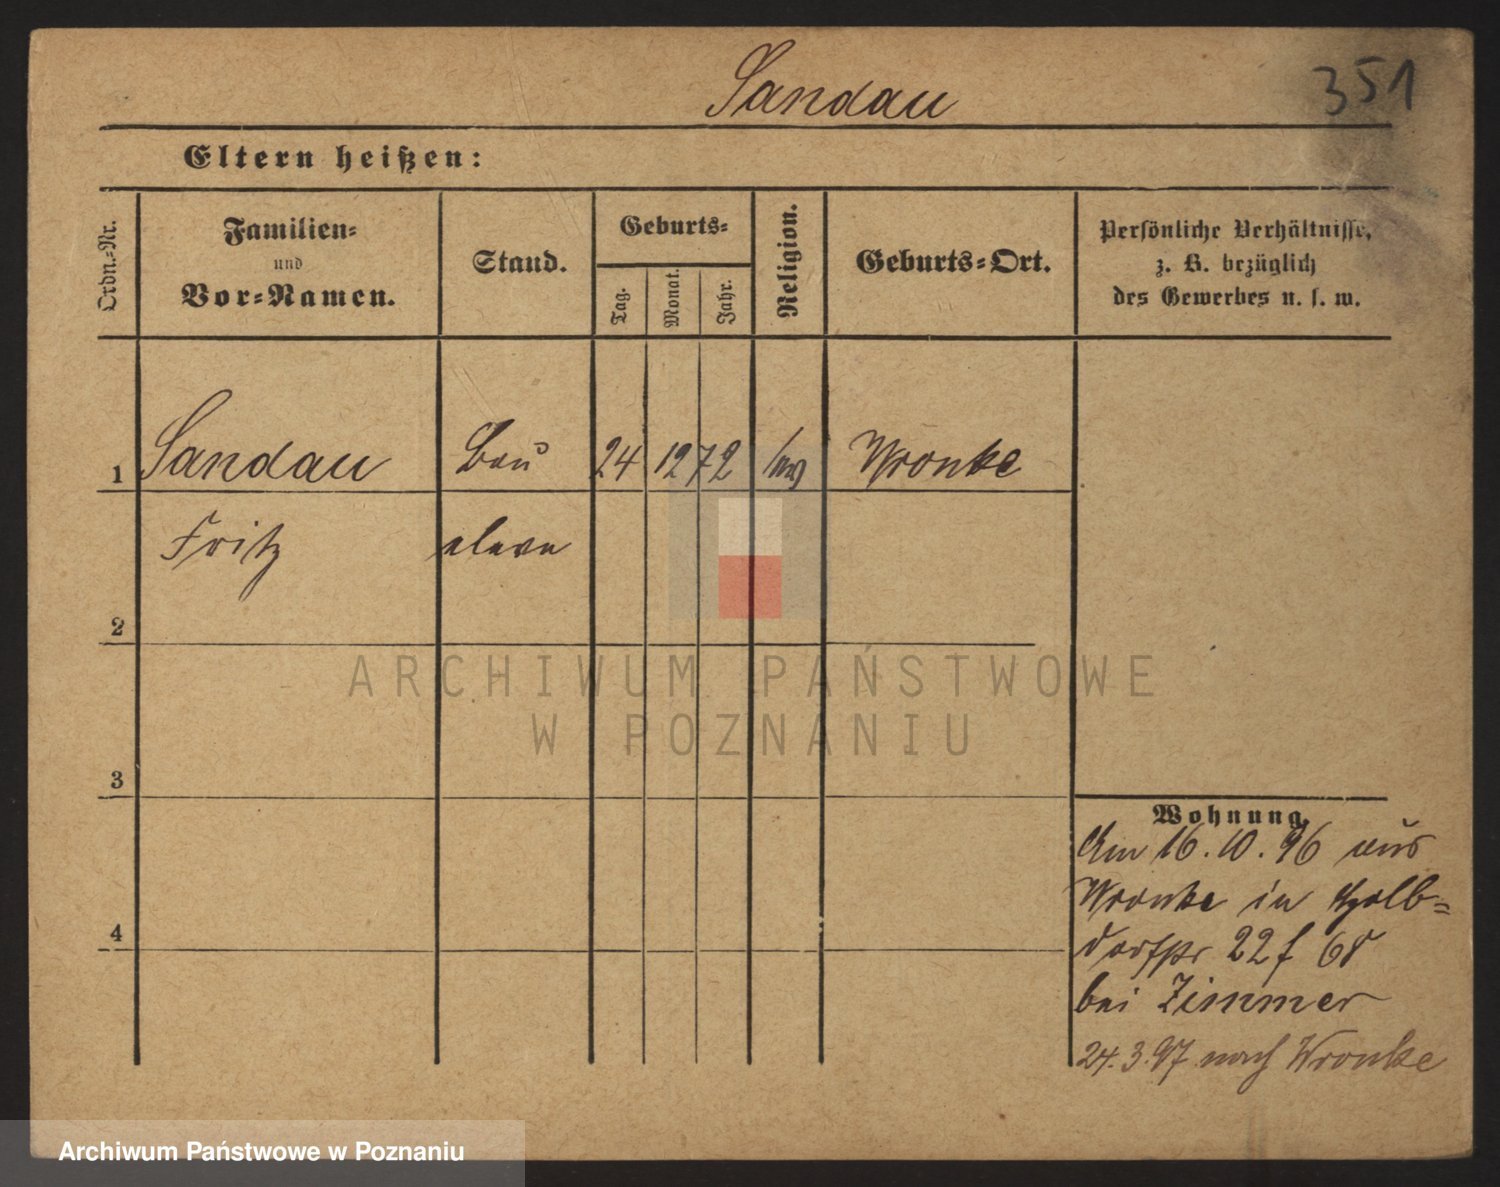 Sandau
351
Eltern heißen:
Ordn.-Nr.
Familien-
und
Vor-Namen.
Stand.
Geburts-
Tag.
Monat.
Jahr.
Religion.
Geburts-Ort.
Persönliche Verhältnisse,
z. B. bezüglich
des Gewerbes u. s. w.
1 Sandau Bau 24 12 72 Wronke
Fritz eleve
2
3
4
Wohnung
Am 16.10.96 aus
Wronke in Halb=
dorfstr 22
bei Zimmer
24.3.97 nach Wronke
ARCHIWUM PAŃSTWOWE
W POZNANIU
Archiwum Państwowe w Poznaniu